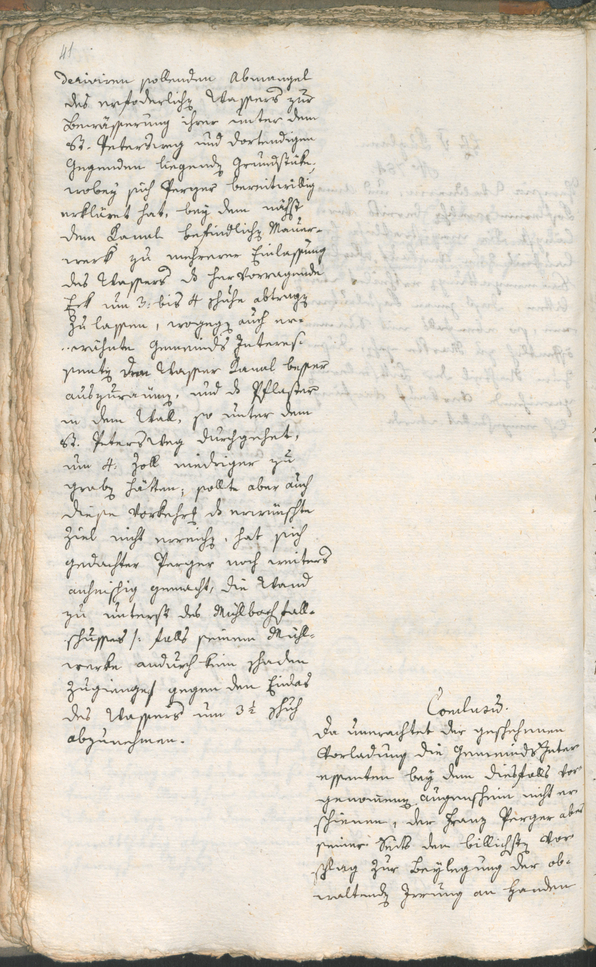 41
deriviren sollenden Abmangel
des erforderlichen Wassers zur
Bewässerung ihrer unter dem
St. Petersweg und dortendigen
Gegenden liegenden Grundstüke,
wobey sich Perger bereitwillig
erkläret hat, bey dem nächst
dem Canal befindlichen Mauer-
werk zu mehrerer Einlassung
des Wassers das hervorragende
Eck um 3: bis 4 Schuhe abtragen
zu lassen, wogegen auch er-
wehnte Gemeinds Interes-
senten den Wasser Canal besser
auszuraumen, und das Pflaster
in dem Wall, so unter dem
St. Peters Weg durchgehet,
um 4. Zoll niedriger zu
graben hätten; sollte aber auch
diese Vorkehrung das erwünschte
Ziel nicht erreichen, hat sich
gedachter Perger noch weiters
anheischig gemacht, die Wand
zu unterst des Mühlbachfall-
schusses /: falls seinem Mühl-
werke andurch kein Schaden
zugienge :/ gegen den Einlas
des Wassers um 3½ Schuh
abzunehmen.
Conclusum.
Da unerachtet der geschehenen
Vorladung die Gemeinds Inter
essenten bey dem diesfalls vor
genommenen Augenschein nicht er
schienen, der Franz Perger aber
seiner Seits den billichsten Vor
schlag zur Beylegung der ob-
waltenden Irrung an Handen